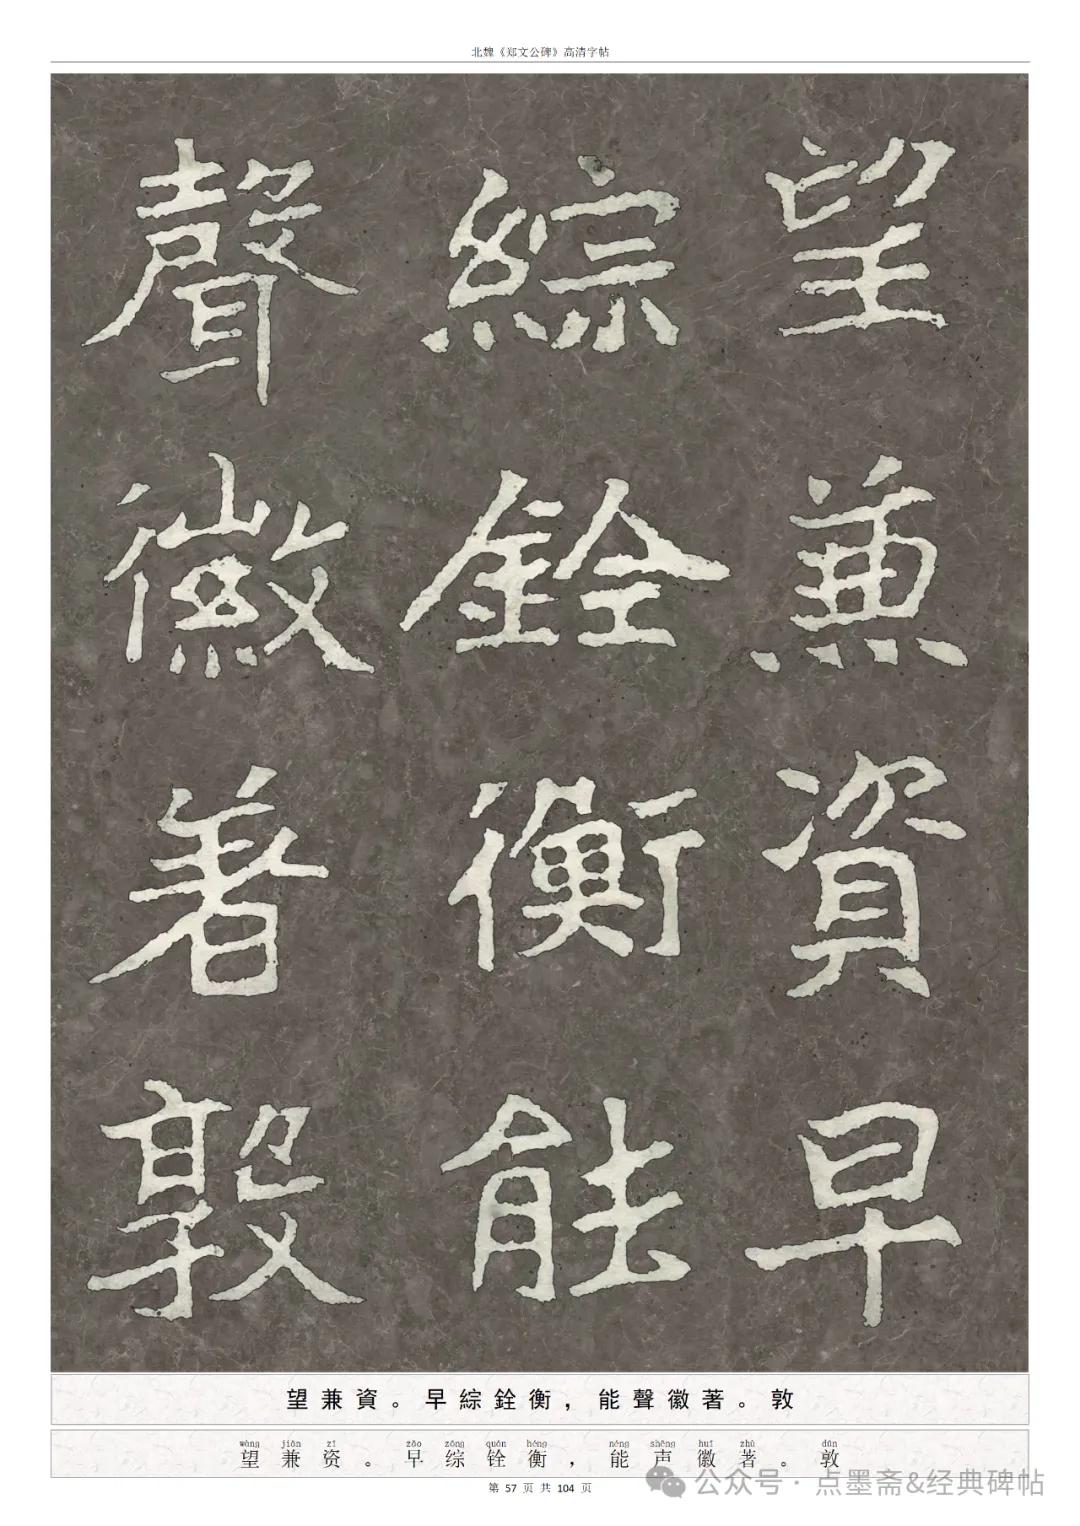 北魏《郑文公碑》高清字帖
望兼資早
綜銓衡能
聲徽著敦
望兼資。早綜銓衡，能聲徽著。敦
wàng jiān zī zǎo zōng quán héng néng shēng huī zhù dūn
望兼资。早综铨衡，能声徽著。敦
第 57 页 共 104 页
公众号 · 点墨斋&经典碑帖